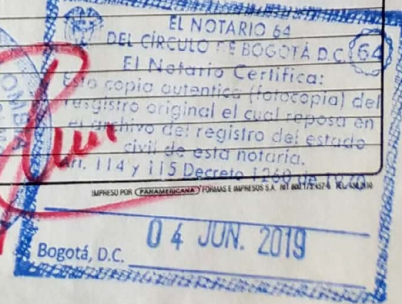 EL NOTARIO 64
DEL CÍRCULO DE BOGOTÁ D.C. 64
El Notario Certifica:
Esta copia autentica (fotocopia) del
registro original el cual reposa en
el archivo del registro del estado
civil de esta notaria.
Art. 114 y 115 Decreto 1260 de 1970
IMPRESO POR PANAMERICANA FORMAS E IMPRESOS S.A.
04 JUN. 2019
Bogotá, D.C.